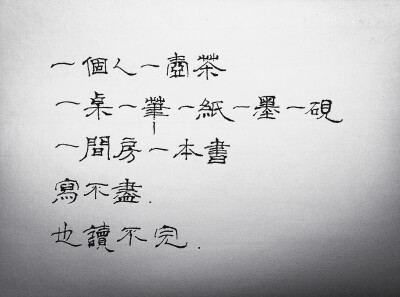 一個人一壺茶
一桌一筆一紙一墨一硯
一間房一本書
寫不盡.
也讀不完.